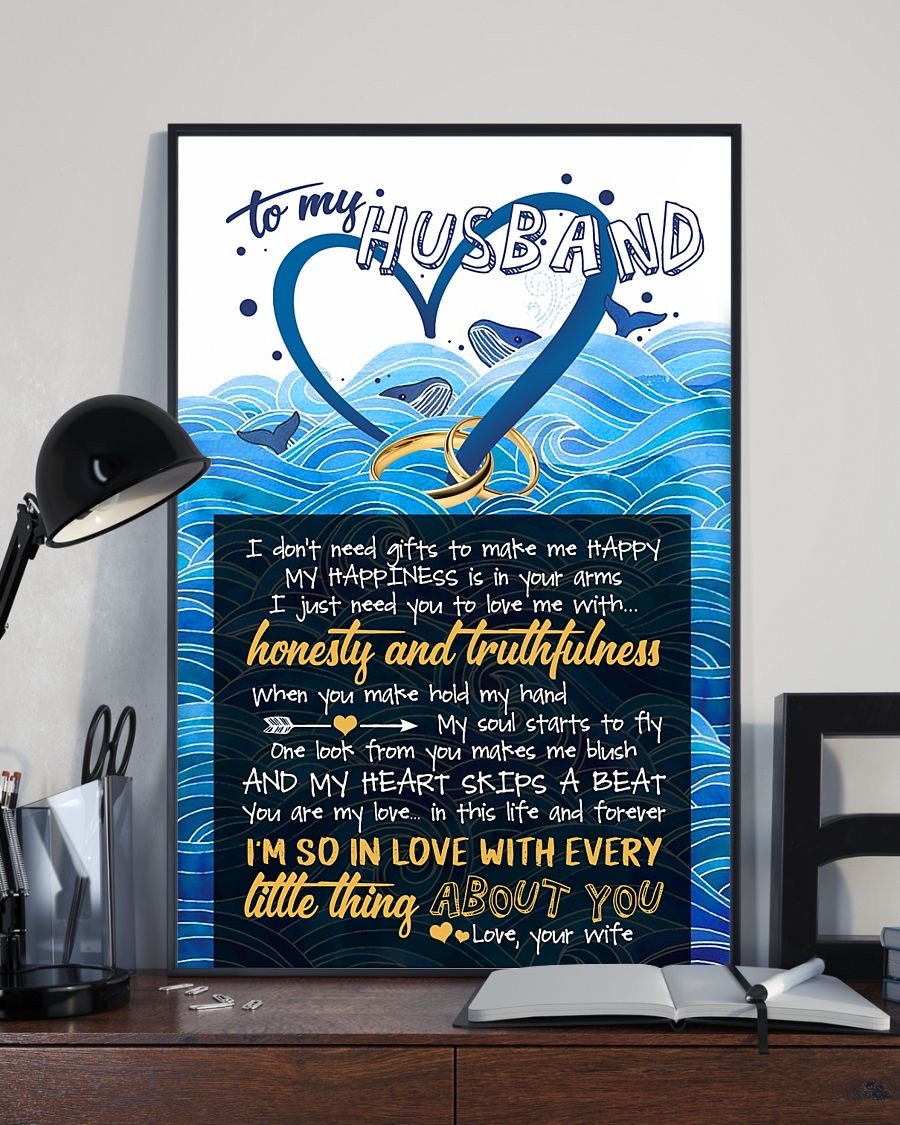 to my HUSBAND
I don't need gifts to make me HAPPY
MY HAPPINESS is in your arms
I just need you to love me with...
honesty and truthfulness
When you make hold my hand
My soul starts to fly
One look from you makes me blush
AND MY HEART SKIPS A BEAT
You are my love... in this life and forever
I'M SO IN LOVE WITH EVERY
little thing ABOUT YOU
Love, your wife